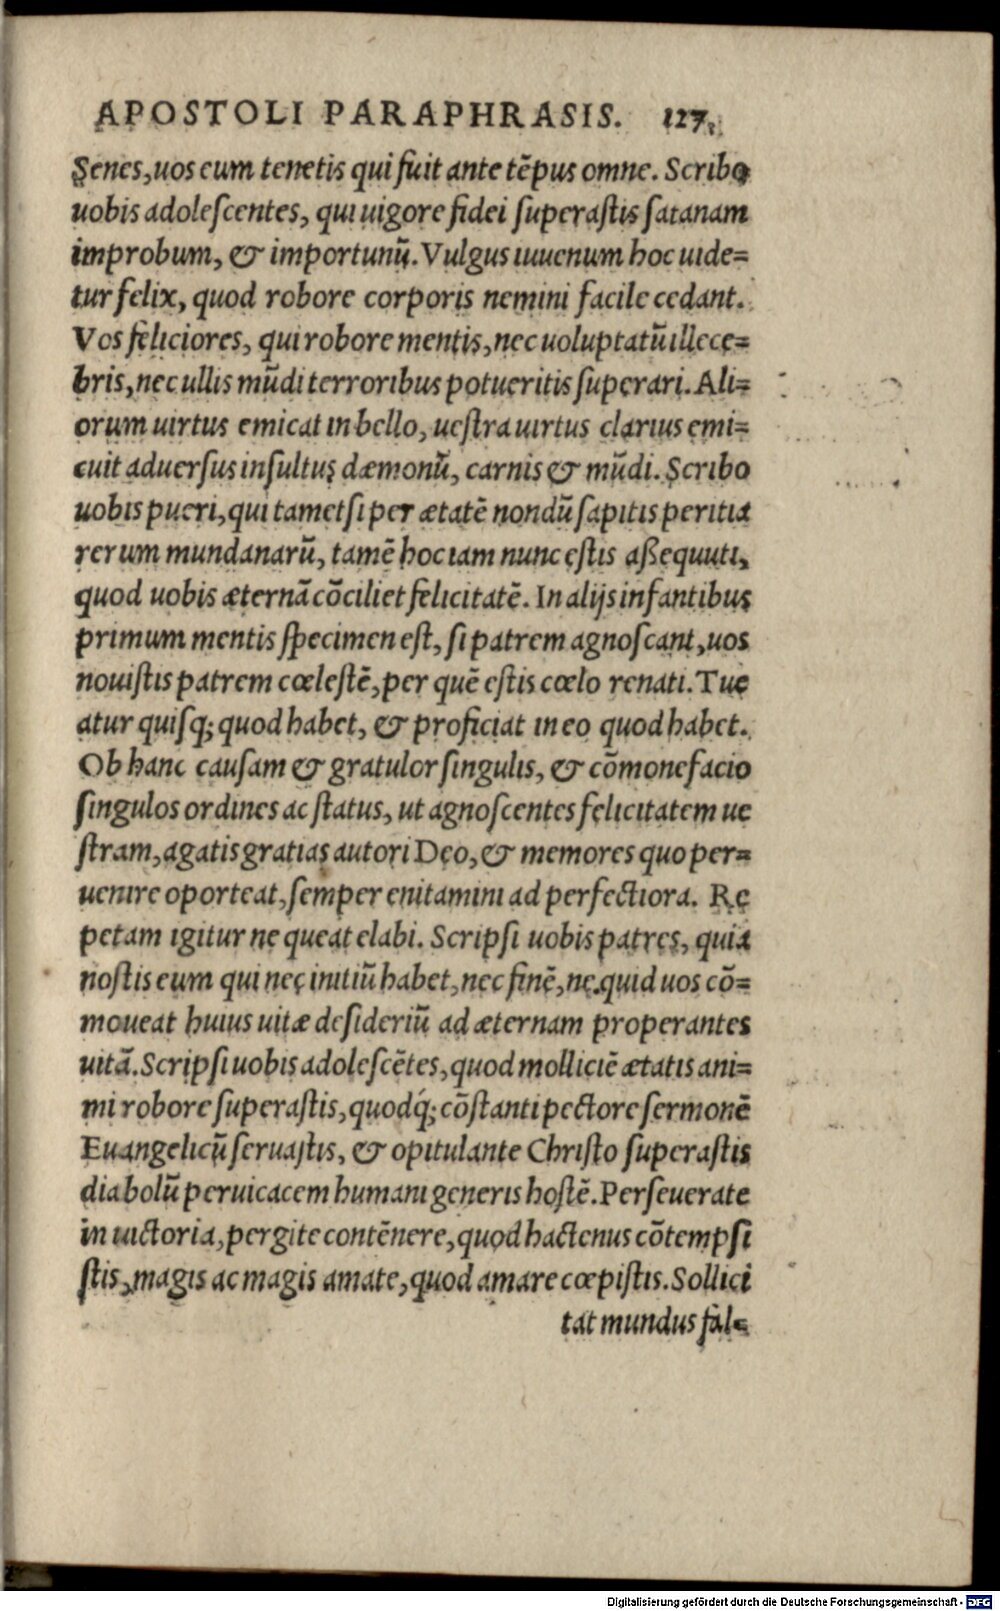 APOSTOLI PARAPHRASIS. 127.
Senes, uos eum tenetis qui fuit ante tẽpus omne. Scribo
uobis adoleſcentes, qui uigore fidei ſuperaſtis ſatanam
improbum, & importunũ. Vulgus iuuenum hoc uide=
tur felix, quod robore corporis nemini facile cedant.
Vos feliciores, qui robore mentis, nec uoluptatũ illece=
bris, nec ullis mũdi terroribus potueritis ſuperari. Ali=
orum uirtus emicat in bello, ueſtra uirtus clarius emi=
cuit aduerſus inſultus dæmonũ, carnis & mũdi. Scribo
uobis pueri, qui tametſi per ætatẽ nondũ ſapitis peritia
rerum mundanarũ, tamẽ hoc iam nunc eſtis aßequuti,
quod uobis æternã cõciliet felicitatẽ. In alijs infantibus
primum mentis ſpecimen eſt, ſi patrem agnoſcant, uos
nouiſtis patrem cœleſtẽ, per quẽ eſtis cœlo renati. Tue
atur quiſq; quod habet, & proficiat in eo quod habet.
Ob hanc cauſam & gratulor ſingulis, & cõmonefacio
ſingulos ordines ac ſtatus, ut agnoſcentes felicitatem ue
ſtram, agatis gratias autori Deo, & memores quo per=
uenire oporteat, ſemper enitamini ad perfectiora. Re
petam igitur ne queat elabi. Scripſi uobis patres, quia
noſtis eum qui nec initiũ habet, nec finẽ, ne quid uos cõ=
moueat huius uitæ deſideriũ ad æternam properantes
uitã. Scripſi uobis adoleſcẽtes, quod molliciẽ ætatis ani=
mi robore ſuperaſtis, quodq́; cõſtanti pectore ſermonẽ
Euangelicũ ſeruaſtis, & opitulante Chriſto ſuperaſtis
diabolũ peruicacem humani generis hoſtẽ. Perſeuerate
in uictoria, pergite contẽnere, quod hactenus cõtempſi
ſtis, magis ac magis amate, quod amare cœpiſtis. Sollici
tat mundus fal=
Digitalisierung gefördert durch die Deutsche Forschungsgemeinschaft - DFG